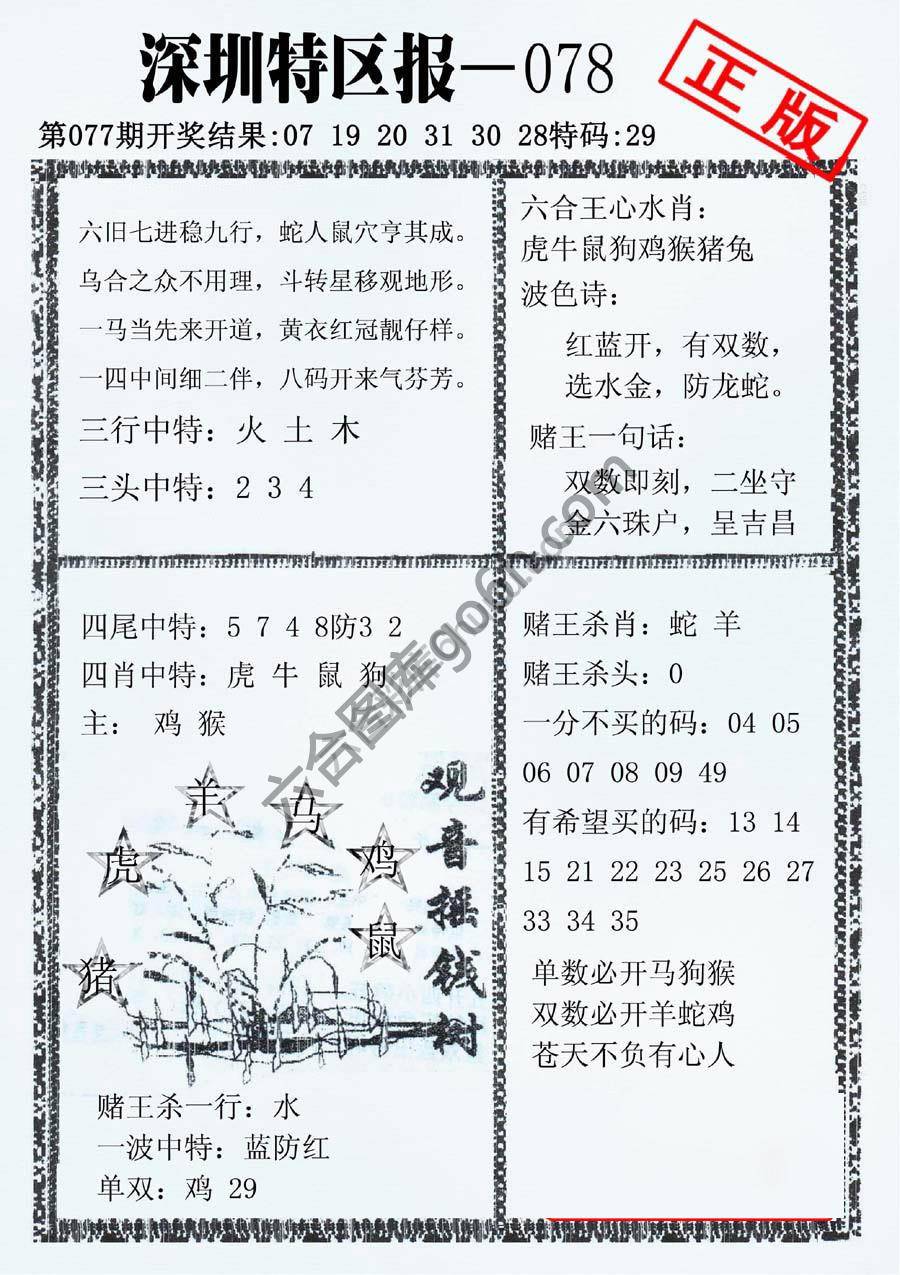 深圳特区报—078
正版
第077期开奖结果:07 19 20 31 30 28特码:29
六旧七进稳九行，蛇人鼠穴亨其成。
乌合之众不用理，斗转星移观地形。
一马当先来开道，黄衣红冠靓仔样。
一四中间细二伴，八码开来气芬芳。
三行中特：火 土 木
三头中特：2 3 4
六合王心水肖：
虎牛鼠狗鸡猴猪兔
波色诗：
红蓝开，有双数，
选水金，防龙蛇。
赌王一句话：
双数即刻，二坐守
金六珠户，呈吉昌
四尾中特：5 7 4 8防3 2
四肖中特：虎 牛 鼠 狗
主： 鸡 猴
羊
马
虎
鸡
鼠
猪
观音摇钱树
赌王杀一行：水
一波中特：蓝防红
单双：鸡 29
赌王杀肖：蛇 羊
赌王杀头：0
一分不买的码：04 05
06 07 08 09 49
有希望买的码：13 14
15 21 22 23 25 26 27
33 34 35
单数必开马狗猴
双数必开羊蛇鸡
苍天不负有心人
六合图库go6h.com